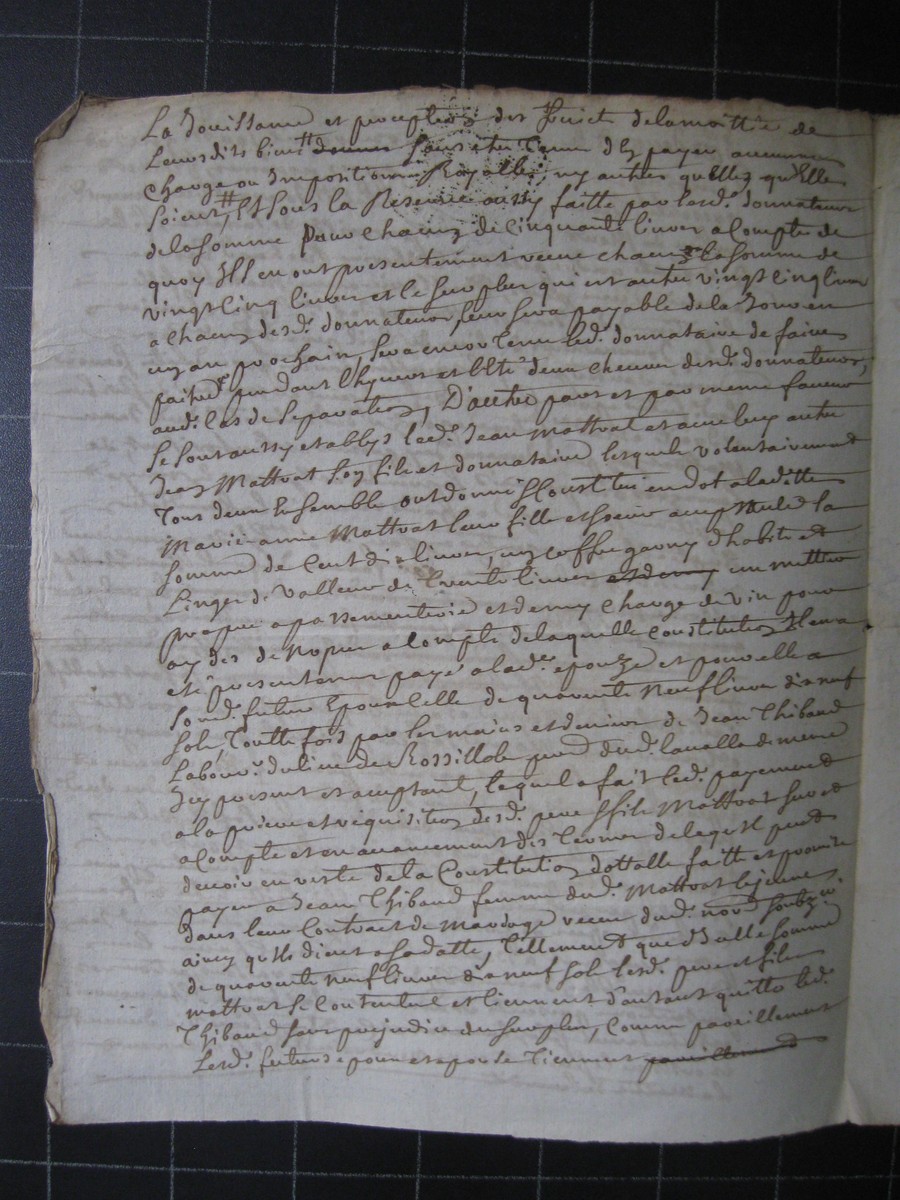 La Jouissance et perception des fruict de la moittie de
Leursdits biens donner sans estre Tenu d'En payer aucunnes
charge ou Impositions Royalles, ny autres quelles qu'Elles
soient, Et sous la Reserve aussy faitte par lesd. donnateurs
de la somme pour chacung de cinquante livres a Compte de
quoy Ills en ont presentement receu chacung la somme de
vingt cinq livres et le surplus qui est autre vingt cinq livres
a chacung desd. donnateurs leur sera payable de ce Jourd en
ung an prochain, sera encor tenu led. donnataire de faire
pendant l'hyvert et l'Eté deux desd. donnateurs,
aud. Cas de separation, D'autre part et par meme faveur
se sont aussy etablys led. Jean Mattrat et avec luy autre
Jean Mattrat son fils et donnataire lesquels volontairement
Tous deux Ensemble ont donné et Constitué en dot a laditte
Marie anne Mattrat leur fille et soeur acceptante la
somme de Cent dix livres, ung coffre garny d'habits et
Linges de Valleur de Trente livres et demy un mettier
propre a passementerie et demy charge de vin pour
aydes de Nopces a Compte de laquelle constitution Il en a
eté presentement payé a lad. epouze et pour elle a
sond. futur Epoux celle de quarente Neuf livres dix neuf
sols, Toutte fois par les mains et deniers de Jean Thibaud
Labour. du lieu de Rossillol dud. la valla de meme
Icy present et acceptant, lequel a fait led. payement
a la priere et requisition desd. pere et fils Mattrat sur et
a Compte et en avancement des Termes de ce qu'Il peut
devoir en reste de la Constitution dottalle faitte et promise
payer a Jean Thibaud femme dud. Mattrat le jeune
dans leur Contract de Mariage receu dud. nore. soubz.
ainsy qu'Ils dient a sa datte, Tellement que d'Icelle somme
de quarente neuf livres dix neuf sols lesd. pere et fils
mattrat se contentent et tiennent d'autant quitte led.
Thibaud sans prejudice du surplus, Comme pareillement
Lesd. futurs epoux et epouse Tiennent pareillement